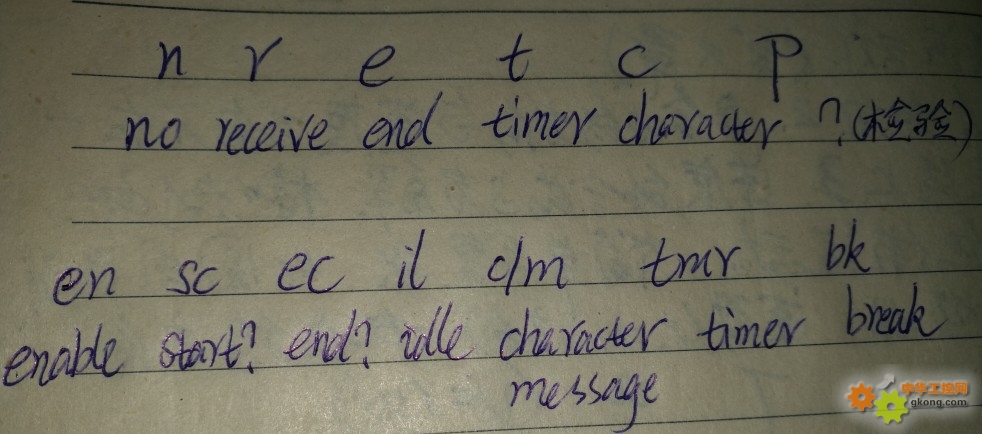 n r e t c p
no receive end timer character ?(检验)
en sc ec il c/m tmr bk
enable start? end? idle character timer break
message
中华工控网
gkong.com